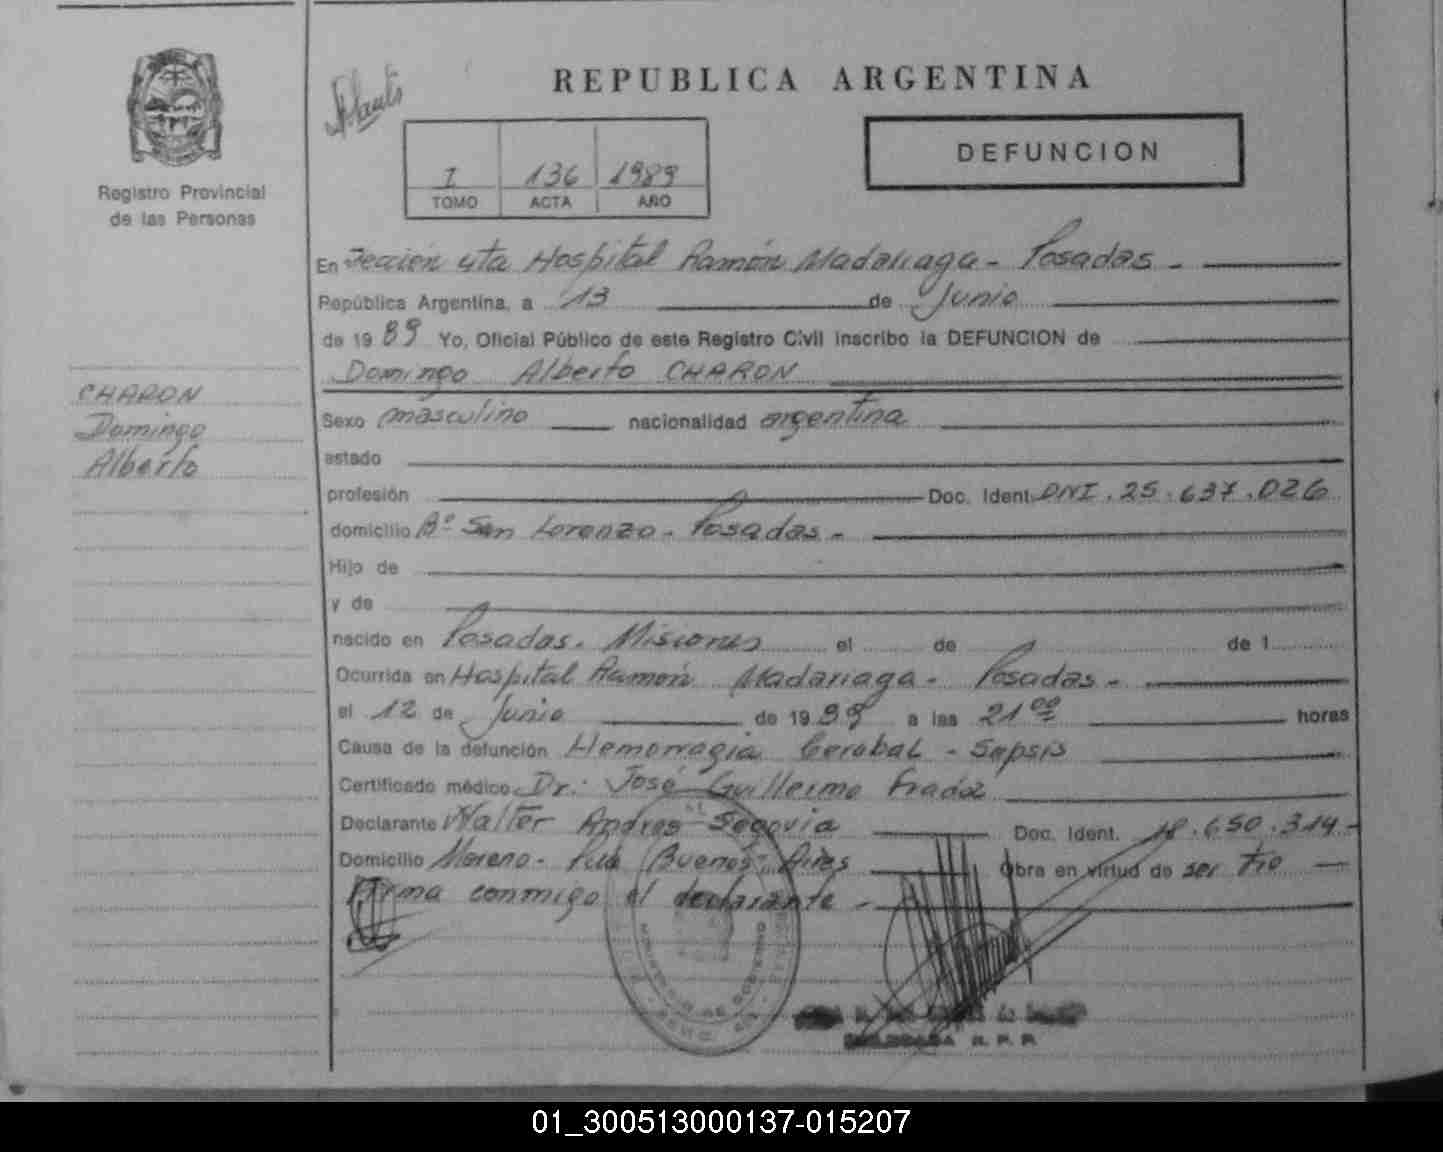 REPUBLICA ARGENTINA
Registro Provincial
de las Personas
I 136 1989
TOMO ACTA AÑO
DEFUNCION
En Sección 4ta Hospital Ramón Madariaga - Posadas -
República Argentina, a 13 de Junio
de 1989 Yo, Oficial Público de este Registro Civil inscribo la DEFUNCION de
Domingo Alberto CHARON
CHARON
Domingo
Alberto
Sexo masculino nacionalidad argentina
estado
profesión Doc. Ident. DNI. 25.637.026
domicilio Bº San Lorenzo - Posadas -
Hijo de
y de
nacido en Posadas. Misiones el de de 1
Ocurrida en Hospital Ramón Madariaga - Posadas -
el 12 de Junio de 1989 a las 21 00 horas
Causa de la defunción Hemorragia Cerebal - Sepsis
Certificado médico Dr. José Guillermo
Declarante Walter Andres Segovia Doc. Ident. 18.650.314 -
Domicilio Moreno - Buenos Aires Obra en virtud de ser tio
Firma conmigo el declarante -
MINISTERIO DE GOBIERNO
R. P. P.
01_300513000137-015207